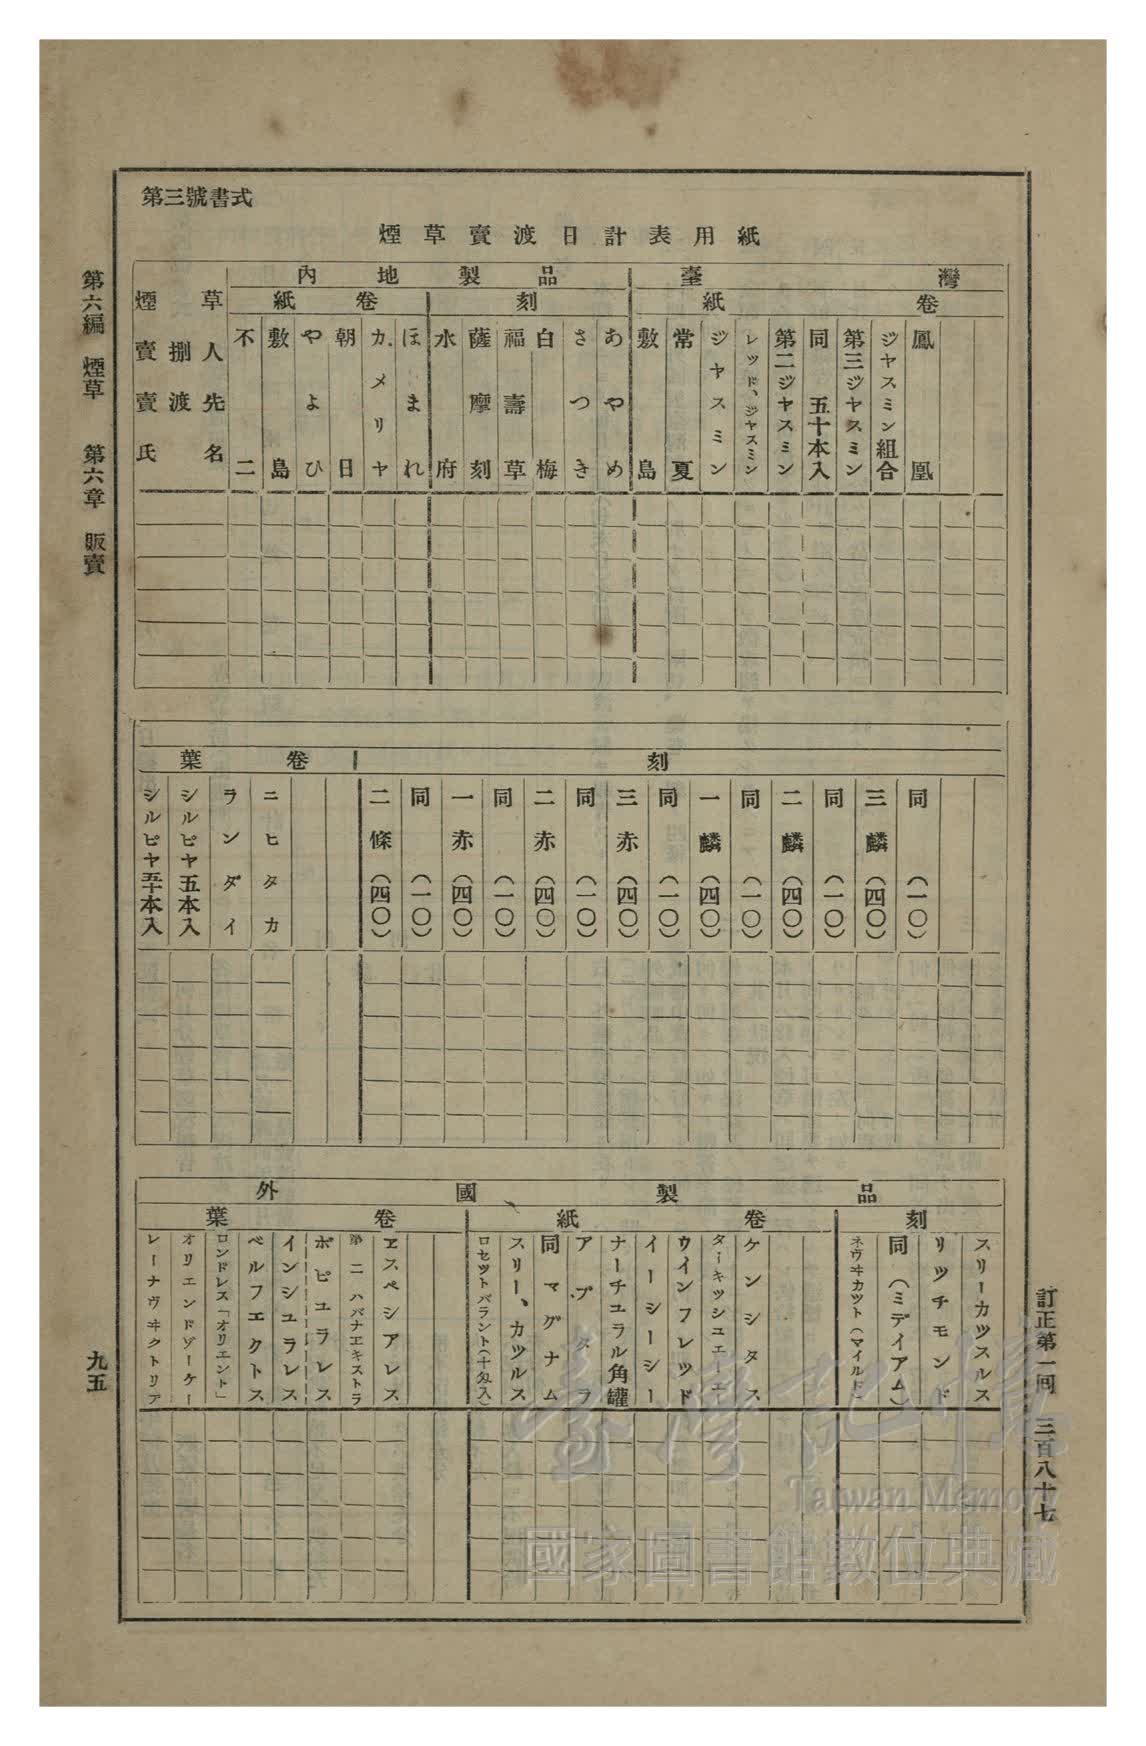 第三號書式
煙草賣渡日計表用紙
第六編 煙草 第六章 販賣
九五
訂正第一回 三百八十七
煙草賣捌人
賣渡先
氏名
內地製品
臺灣
紙卷
刻
紙卷
不二
敷島
やよひ
朝日
カメリヤ
ほまれ
水府
薩摩刻
福壽草
白梅
さつき
あやめ
敷島
常夏
ジヤスミン
レツド、ジヤスミン
第二ジヤスミン
同 五十本入
第三ジヤスミン
ジヤスミン組合
鳳凰
葉卷
刻
シルビヤ五十本入
シルビヤ五本入
ランダイ
ニヒタカ
二條(四〇)
同(一〇)
一赤(四〇)
同(一〇)
二赤(四〇)
同(一〇)
三赤(四〇)
同(一〇)
一麟(四〇)
同(一〇)
二麟(四〇)
同(一〇)
三麟(四〇)
同(一〇)
外國製品
葉卷
紙卷
刻
レーナヴヰクトリア
オリエンドゾーケー
ロンドレス「オリエント」
ベルフエクトス
インシユラレス
ポピユラレス
第二ハバナエキストラ
ヱスペシアレス
ロセツトバラント(十匁入)
スリー、カツルス
同マグナム
アプダラ
ナーチユラル角罐
イーシーシー
ウインフレツド
ターキツシユエーエー
ケンシタス
ネヴヰカツト(マイルド)
同(ミデイアム)
リツチモンド
スリーカツスルス
臺灣記憶
Taiwan Memory
國家圖書館數位典藏